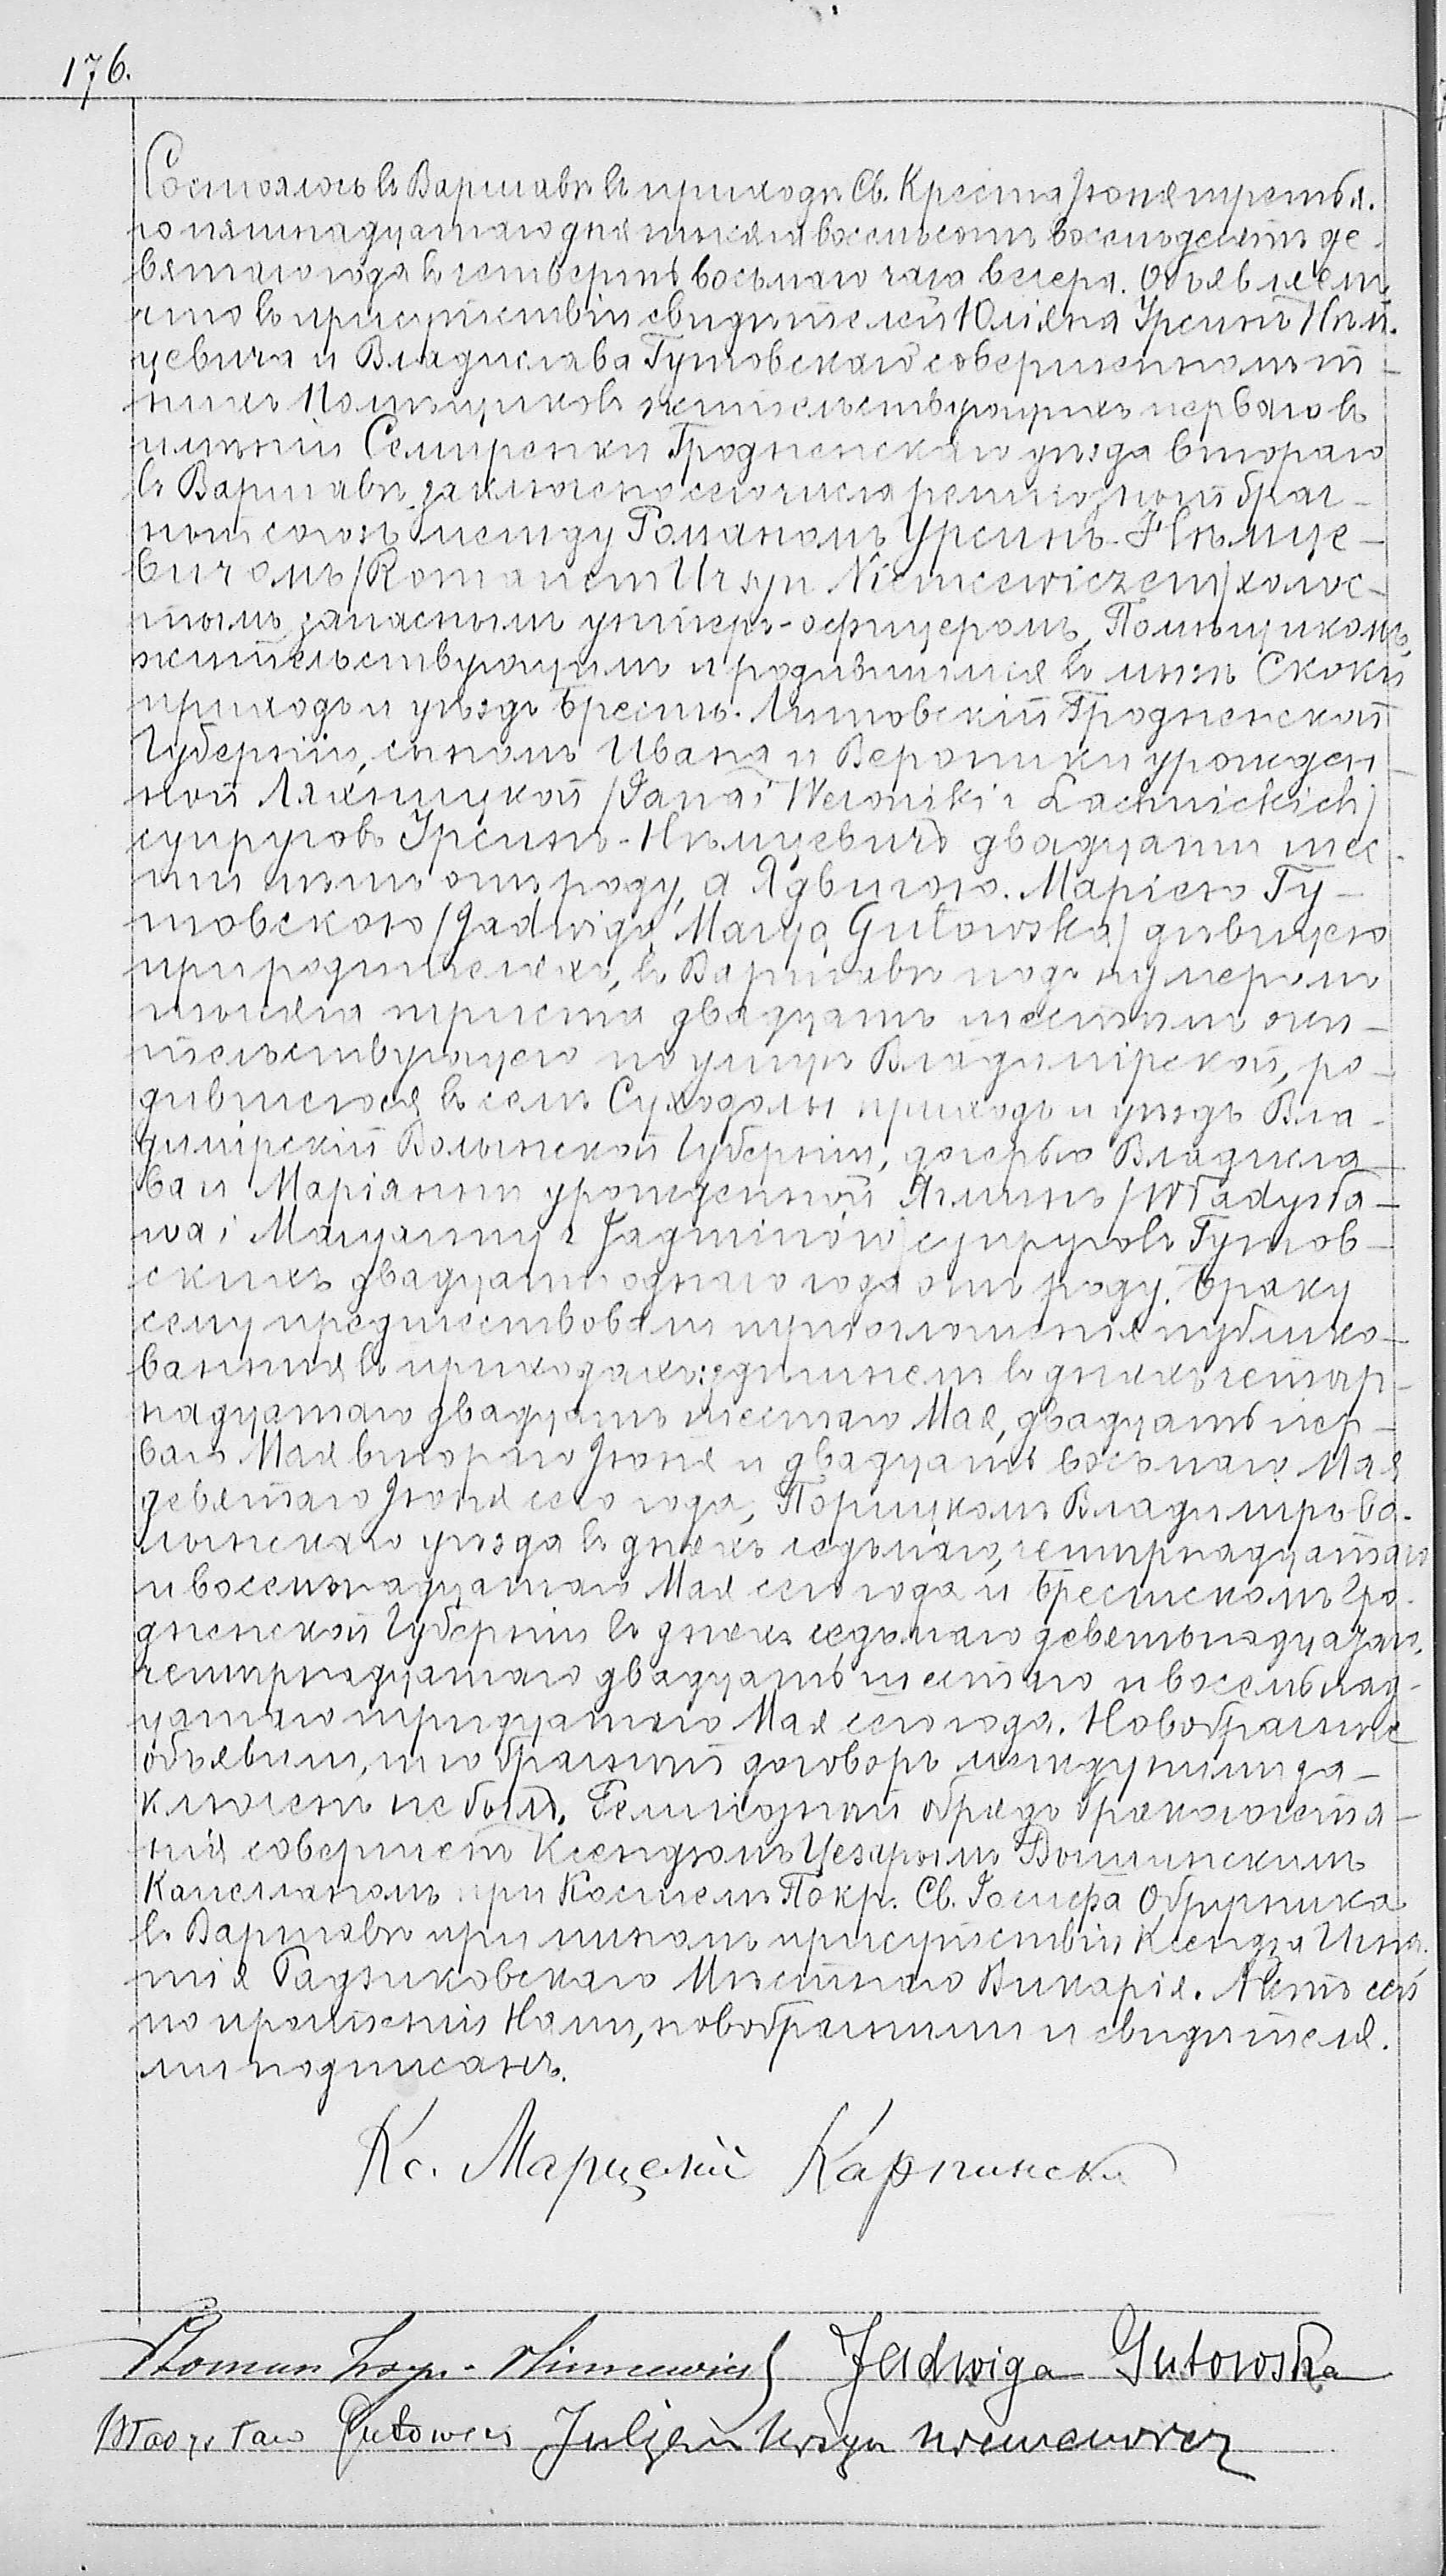 176.
Состоялось въ Варшавѣ въ приходѣ Св. Креста Іюня третья-
го пятнадцатаго дня тысяча восемьсотъ восемьдесятъ де-
вятаго года въ четвертъ восьмаго часа вечера. Объявляемъ
что въ присутствіи свидѣтелей Юліяна Урсинъ Нѣм-
цевича и Владислава Гутовскаго совершеннолѣт-
нихъ Помѣщиковъ жительствующихъ перваго въ
имѣніи Семиренки Гродненскаго уѣзда втораго
въ Варшавѣ, заключено сего числа религіозный брач-
ный союзъ между Романомъ Урсинъ-Нѣмце-
вичомъ /Romanem Ursyn Niemcewiczem/ холос-
тымъ, запаснымъ унтеръ-офицеромъ, Помѣщикомъ,
жительствующимъ и родившимся въ имѣн. Скоки
приходъ и уѣздъ Брестъ-Литовскій Гродненской
Губерніи, сыномъ Ивана и Вероники урожден-
ной Ляхницкой /Jana i Weroniki z Lachnickich/
супруговъ Урсинъ-Нѣмцевичъ двадцати шес-
ти лѣтъ отъ роду, а Ядвигою-Маріею Гу-
товскою /Jadwigą Maryą Gutowską/ дѣвицею
при родителяхъ, въ Варшавѣ подъ нумеромъ
тысяча триста двадцать шестымъ жи-
тельствующею по улицѣ Владимірской, ро-
дившеюся въ селѣ Суходолы приходъ и уѣздъ Вла-
димірскій Волынской Губерніи, дочерью Владисла-
ва и Маріянны урожденной Ягминъ /Władysła-
wa i Maryanny z Jagminów/ супруговъ Гутов-
скихъ двадцати однаго года отъ роду. Браку
сему предшествовали три оглашенія публико-
ванныя въ приходахъ: здѣшнемъ въ дняхъ четыр-
надцатаго двадцать шестаго Мая, двадцать пер-
ваго Мая втораго Іюня и двадцать восьмаго Мая
девятаго Іюня сего года, Порицкомъ Владиміръ Во-
лынскаго уѣзда въ дняхъ седьмаго, четырнадцатаго
и восемьнадцатаго Мая сего года и Брестскомъ Гро-
дненской Губерніи въ дняхъ седьмаго девятьнадцатаго,
четырнадцатаго двадцать шестаго и восемьнад-
цатаго тридцатаго Мая сего года. Новобрачные
объявили, что брачный договоръ между ними за-
ключенъ не былъ. Религіозный обрядъ бракосочета-
нія совершенъ Ксендзомъ Цезарымъ
Капеланомъ при Костелѣ Покр. Св. Іосифа Обручника
въ Варшавѣ при личномъ присутствіи Ксендза Игна-
тія Гадзиковскаго Мѣстнаго Викарія. Актъ сей
по прочтеніи Нами, новобрачными и свидѣтеля-
ми подписанъ.
Кс. Марцелій Карпинскі
Roman Ursyn-Niemcewicz Jadwiga Gutowska
Władysław Gutowski Juljan Ursyn Niemcewicz